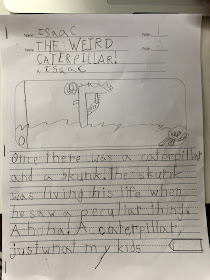 Name ISaac Date 1
Name THE WEIRD Date 2
Name CATERPILLAR!
ISaac
Once there was a caterpillar
and a skunk. The skunk
was living his life when
he saw a peculiar thing.
Ahaha! A caterpillar,
just what my kids